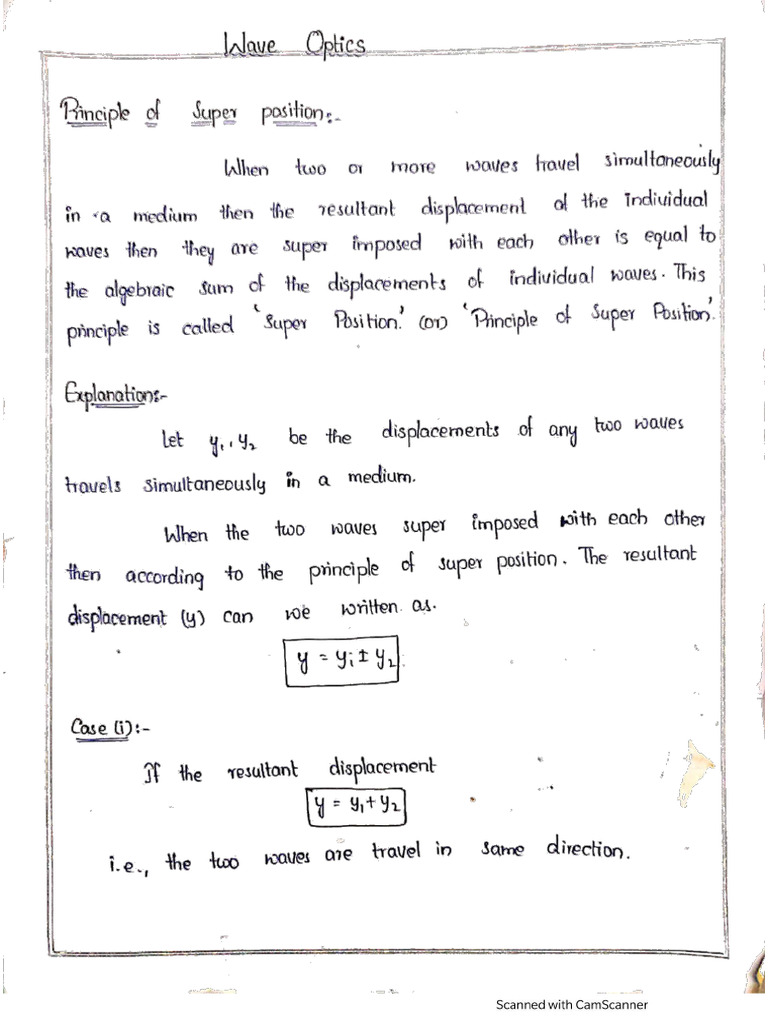 Wave Optics
Principle of Super position:-
When two or more waves travel simultaneously
in a medium then the resultant displacement of the individual
waves then they are super imposed with each other is equal to
the algebraic sum of the displacements of individual waves. This
principle is called 'Super Position.' (or) 'Principle of Super Position'.
Explanation:-
Let y₁, y₂ be the displacements of any two waves
travels simultaneously in a medium.
When the two waves super imposed with each other
then according to the principle of super position. The resultant
displacement (y) can we written as.
y = y₁ ± y₂.
Case (i):-
If the resultant displacement
y = y₁ + y₂
i.e., the two waves are travel in same direction.
Scanned with CamScanner